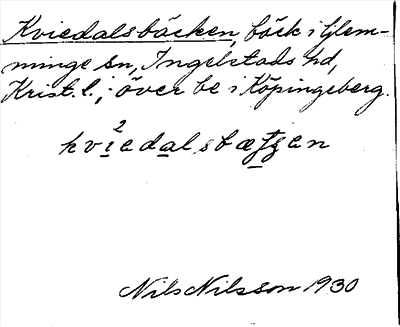 Kviedalsbäcken, bäck i Glem-
minge sn, Ingelstads hd,
Krist. l.; över be i Köpingeberg.
kvi²edalsbætʃen
Nils Nilsson 1930